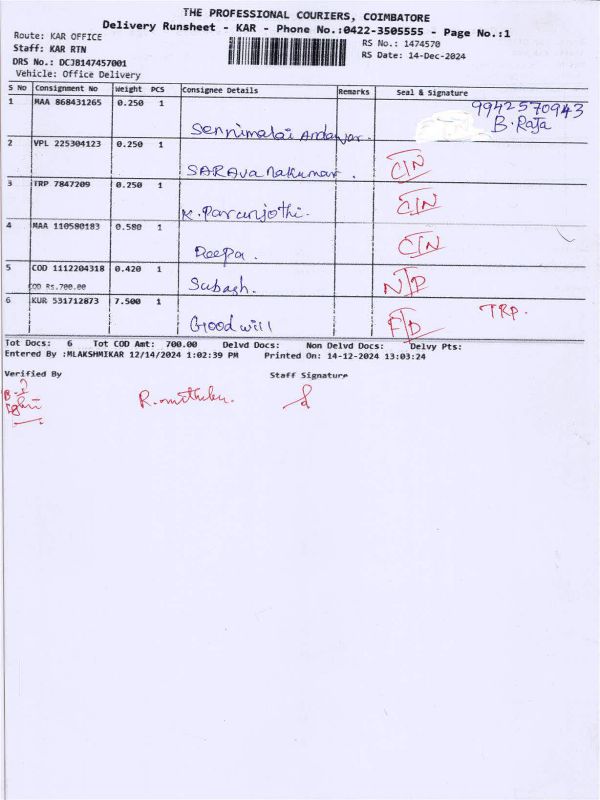 THE PROFESSIONAL COURIERS, COIMBATORE
Delivery Runsheet - KAR - Phone No.:0422-3505555 - Page No.:1
Route: KAR OFFICE
RS No.: 1474570
Staff: KAR RTN
RS Date: 14-Dec-2024
DRS No.: DCJ8147457001
Vehicle: Office Delivery
S No Consignment No Weight PCS Consignee Details Remarks Seal & Signature
1 MAA 868431265 0.250 1 9942570943
Sennimalai Andavar. B. Raja
2 VPL 225304123 0.250 1
SARAvanakumar. CIN
3 TRP 7847209 0.250 1
K. Paranjothi. CIN
4 MAA 110580183 0.580 1
Deepa. CIN
5 COD 1112204318 0.420 1
COD Rs.700.00 Subash. NIP
6 KUR 531712873 7.500 1 TRP.
Good will F/D
Tot Docs: 6 Tot COD Amt: 700.00 Delvd Docs: Non Delvd Docs: Delvy Pts:
Entered By :MLAKSHMIKAR 12/14/2024 1:02:39 PM Printed On: 14-12-2024 13:03:24
Verified By Staff Signature